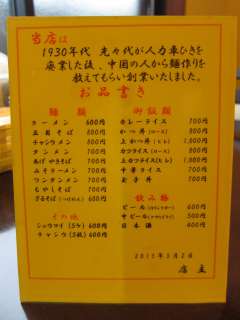 当店は
1930年代 先々代が人力車ひきを
廃業した後、中国の人から麺作りを
教えてもらい創業いたしました。
お品書き
麺類
ラーメン 600円
五目そば 800円
チャシウメン 800円
タンメン 700円
あげやきそば 700円
ムギラーメン
ワンタンメン 700円
もやしそば 700円
ざるそば
その他
シュウマイ(5ケ) 600円
チャシウ(5枚) 600円
御飯類
カレーライス 700円
かつ丼(ロース) 900円
上かつ丼(ヒレ)
カツライス(ロース) 900円
上カツライス(ヒレ)
中華ライス 700円
玉子丼 700円
飲み物
ビール
中ビール
日本酒 400円
店主